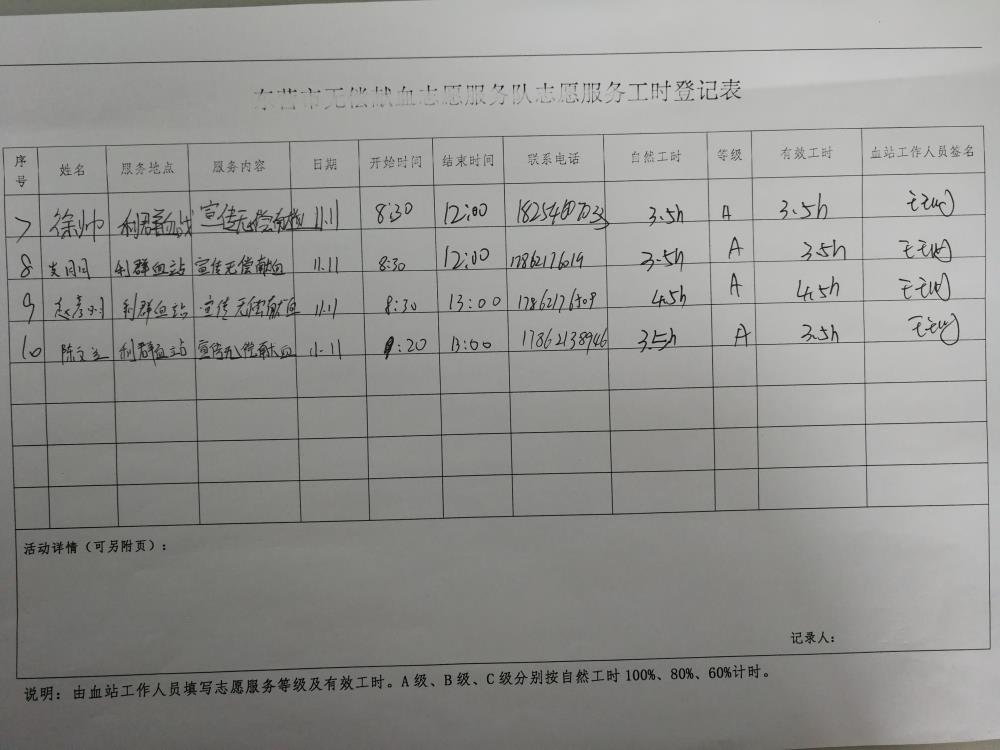 东营市无偿献血志愿服务队志愿服务工时登记表
序号 姓名 服务地点 服务内容 日期 开始时间 结束时间 联系电话 自然工时 等级 有效工时 血站工作人员签名
7 徐帅 利群血站 宣传无偿献血 11.11 8:30 12:00 3.5h A 3.5h
8 利群血站 宣传无偿献血 11.11 8:30 12:00 17862176019 3.5h A 3.5h
9 利群血站 宣传无偿献血 11.11 8:30 13:00 17862176509 4.5h A 4.5h
10 利群血站 宣传无偿献血 11.11 9:20 13:00 17862138946 3.5h A 3.5h
活动详情（可另附页）：
记录人：
说明：由血站工作人员填写志愿服务等级及有效工时。A级、B级、C级分别按自然工时100%、80%、60%计时。